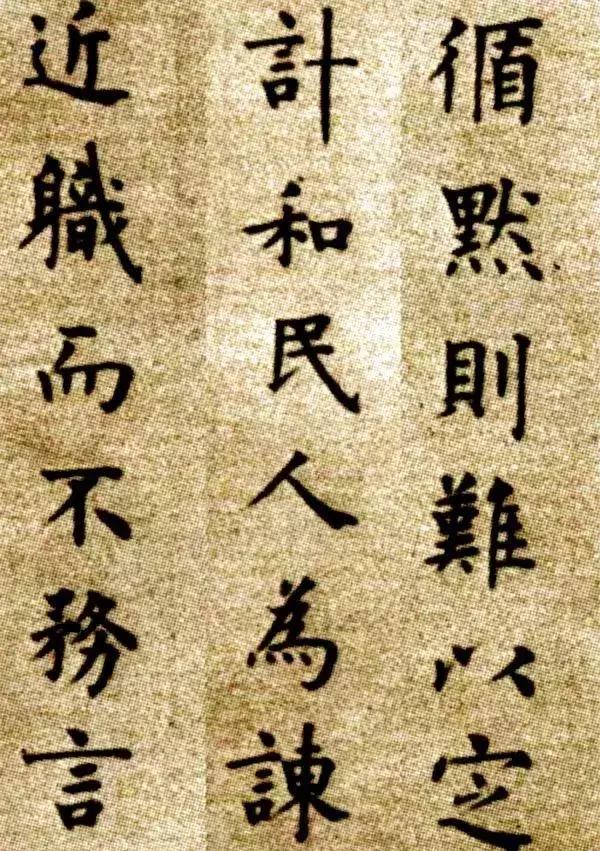 循默則難以定
計和民人為諫
近職而不務言